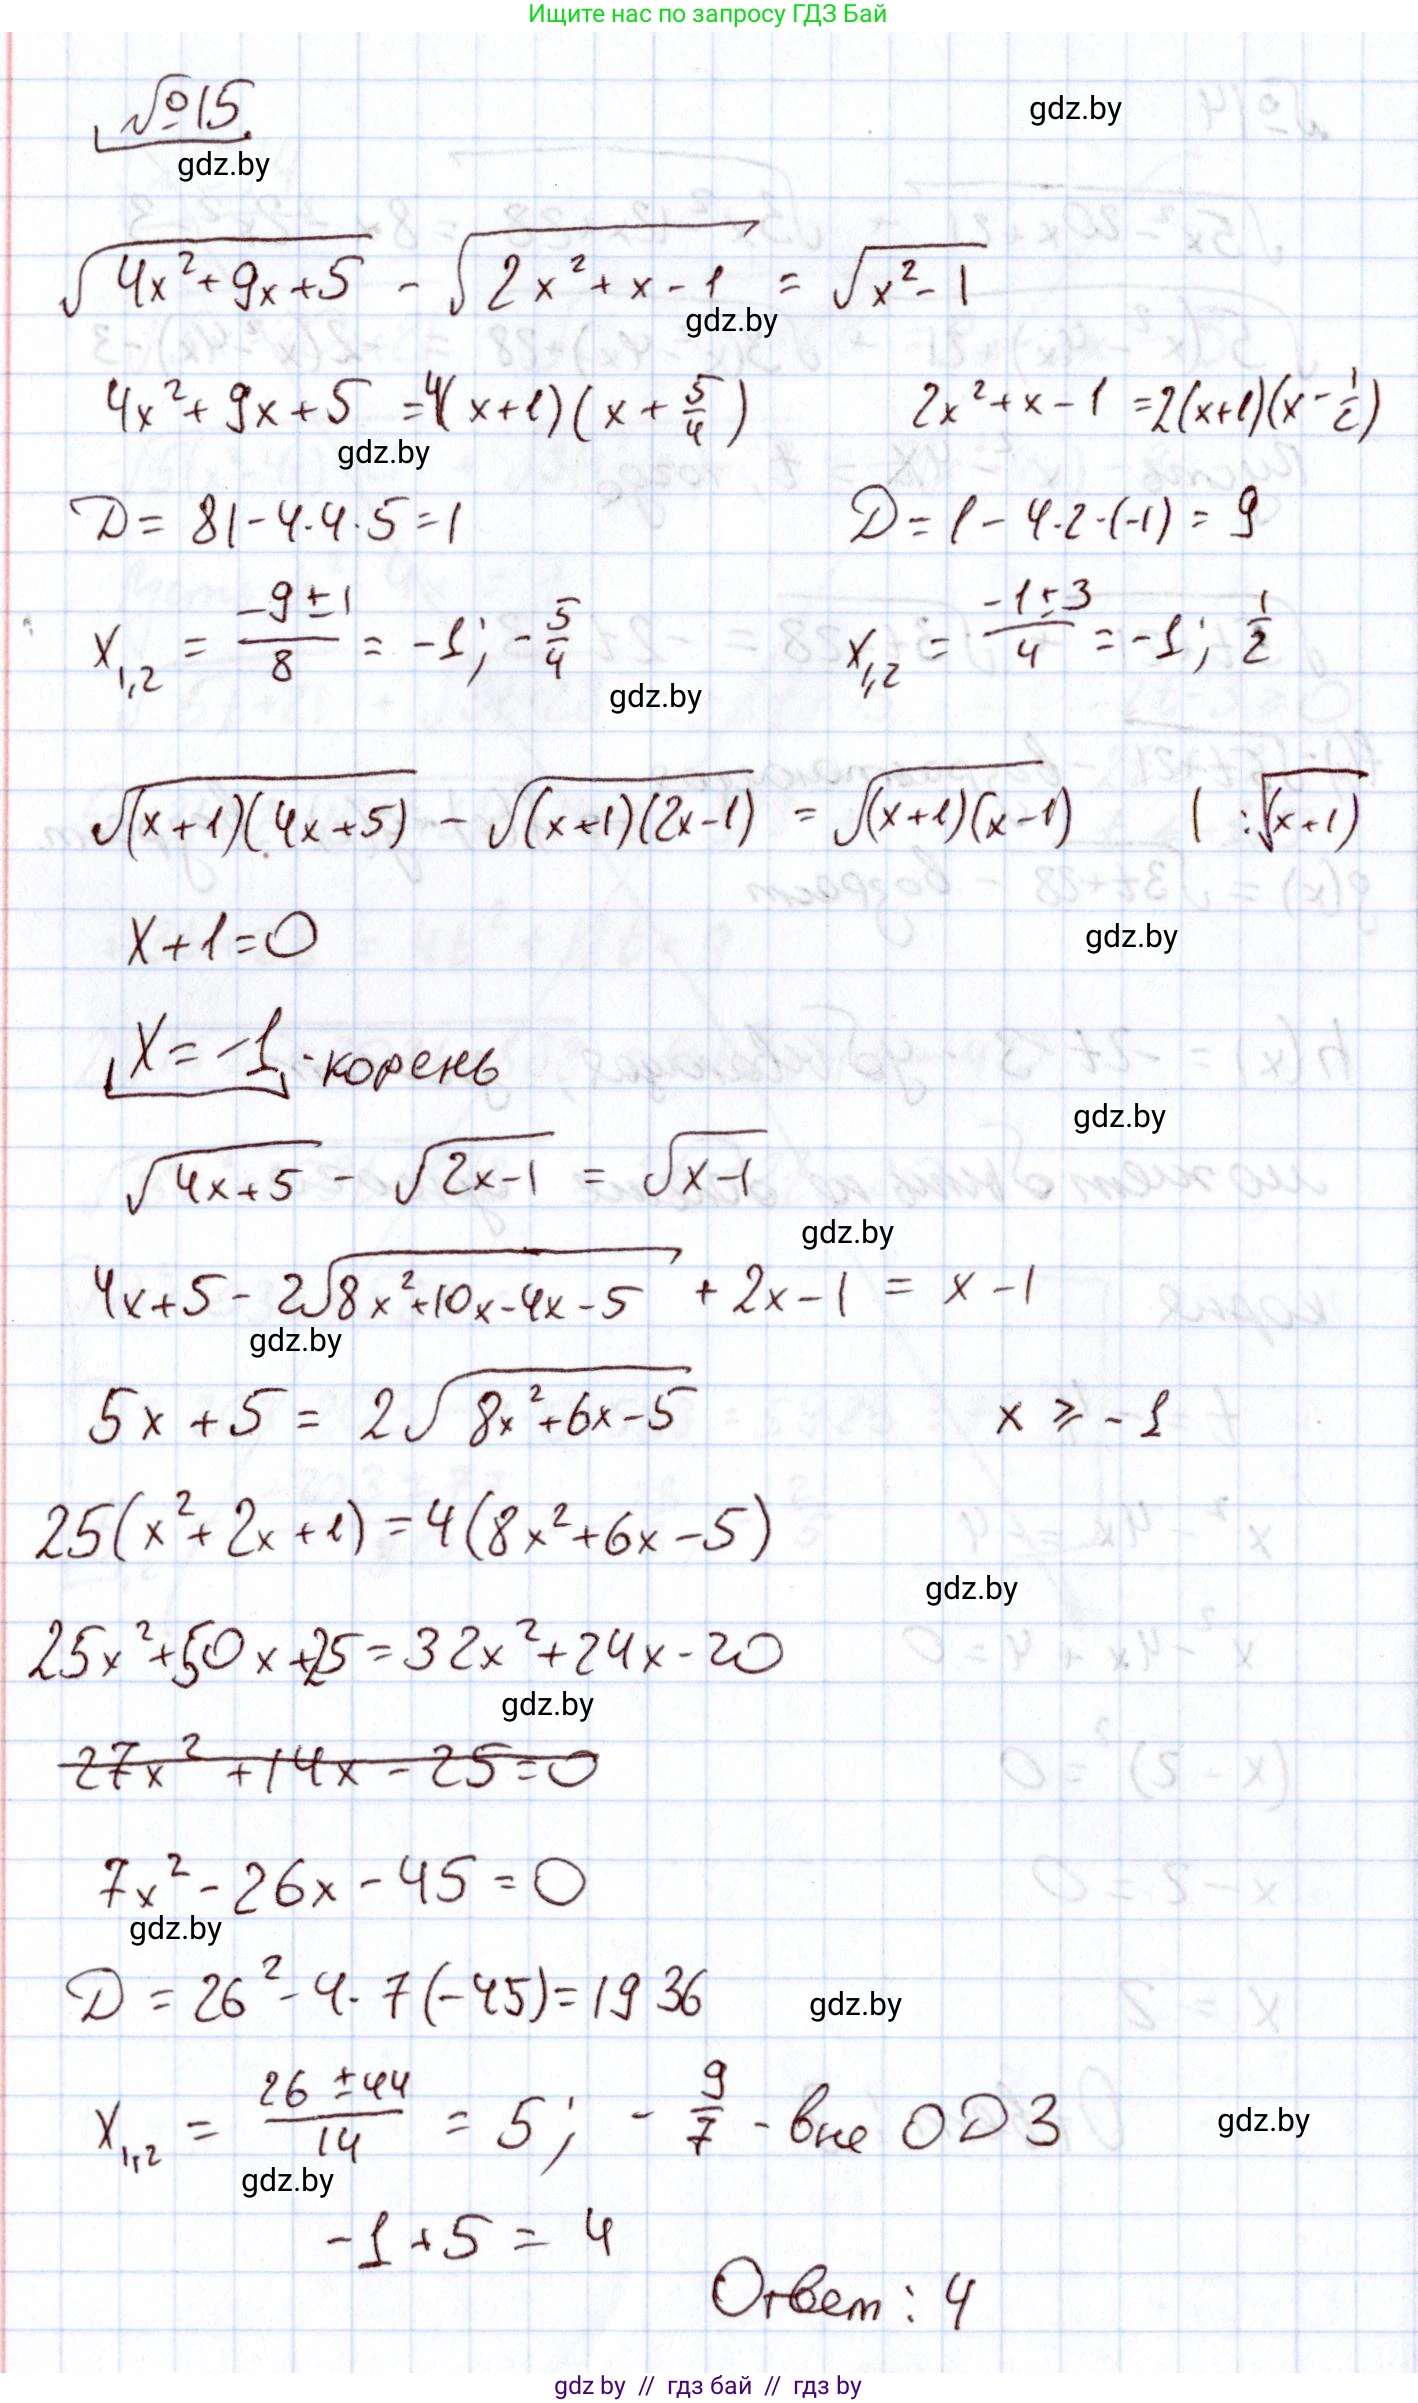 Ищите нас по запросу ГДЗ Бай
№15.
gdz.by
gdz.by
√(4x²+9x+5) - √(2x²+x-1) = √(x²-1)
gdz.by
4x²+9x+5 =4(x+1)(x+5/4)
2x²+x-1 =2(x+1)(x-1/2)
gdz.by
D= 81-4·4·5=1
D=1-4·2·(-1)=9
x₁,₂ = (-9±1)/8 = -1; -5/4
x₁,₂ = (-1±3)/4 = -1; 1/2
gdz.by
√((x+1)(4x+5)) - √((x+1)(2x-1)) = √((x+1)(x-1)) | :√(x+1)
x+1=0
gdz.by
x=-1 -корень
gdz.by
√(4x+5) - √(2x-1) = √(x-1)
gdz.by
4x+5- 2√(8x²+10x-4x-5) + 2x-1 = x-1
gdz.by
5x+5= 2√(8x²+6x-5)
x ≥ -1
25(x²+2x+1)=4(8x²+6x-5)
gdz.by
25x²+50x+25=32x²+24x-20
gdz.by
27x²+14x-25=0
7x²-26x-45=0
gdz.by
D=26²-4·7(-45)=1936
gdz.by
x₁,₂ = (26±44)/14 = 5; -9/7 - вне ОДЗ
gdz.by
gdz.by
-1+5=4
Ответ: 4
gdz.by // гдз бай // гдз by